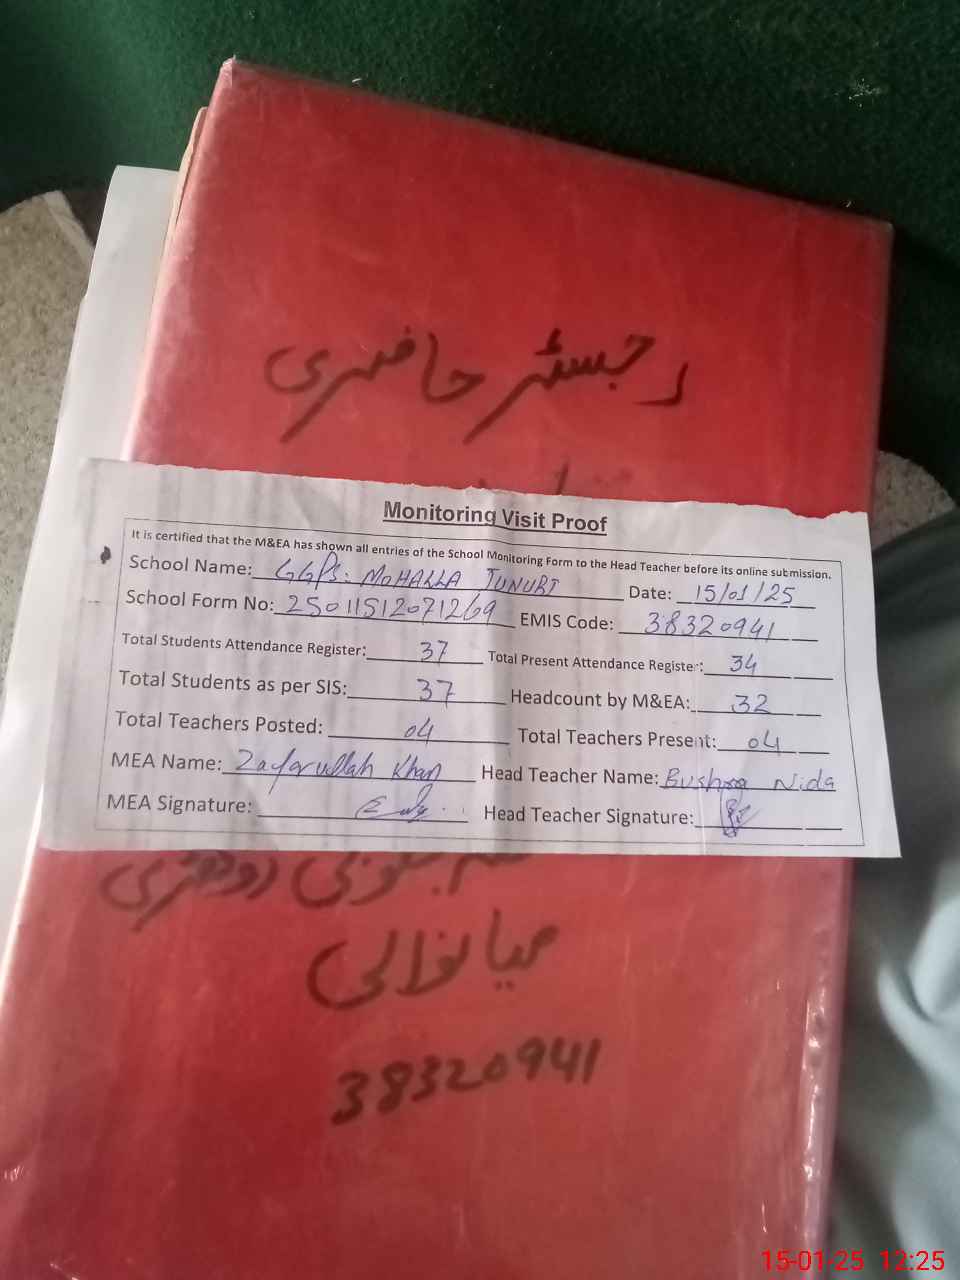 رجسٹر حاضری
Monitoring Visit Proof
It is certified that the M&EA has shown all entries of the School Monitoring Form to the Head Teacher before its online submission.
School Name: GGPS. MOHALLA JUNUBI Date: 15/01/25
School Form No: 25011512071269 EMIS Code: 38320941
Total Students Attendance Register: 37 Total Present Attendance Register: 34
Total Students as per SIS: 37 Headcount by M&EA: 32
Total Teachers Posted: 04 Total Teachers Present: 04
MEA Name: Zafarullah Khan Head Teacher Name: Bushra Nida
MEA Signature: Head Teacher Signature:
میانوالی
38320941
15-01-25 12:25